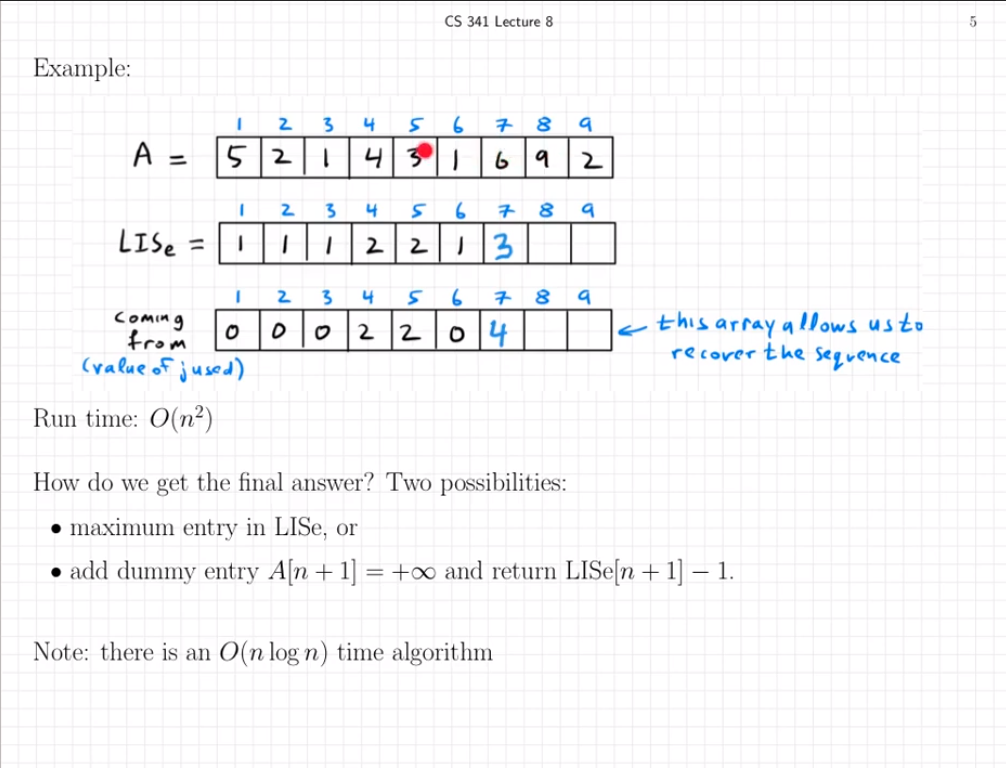 CS 341 Lecture 8
5
Example:
1 2 3 4 5 6 7 8 9
A = 5 2 1 4 3 1 6 9 2
1 2 3 4 5 6 7 8 9
LISe = 1 1 1 2 2 1 3
1 2 3 4 5 6 7 8 9
coming
from
0 0 0 2 2 0 4
(value of j used)
← this array allows us to
recover the sequence
Run time: O(n²)
How do we get the final answer? Two possibilities:
• maximum entry in LISe, or
• add dummy entry A[n + 1] = +∞ and return LISe[n + 1] − 1.
Note: there is an O(n log n) time algorithm